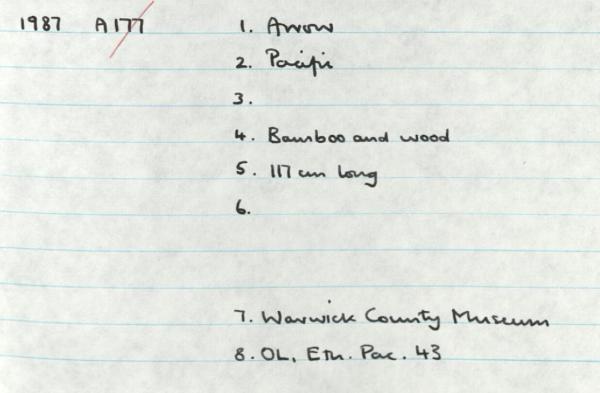 1987 A177 1. Arrow
2. Pacific
3.
4. Bamboo and wood
5. 117 cm long
6.
7. Warwick County Museum
8. OL, Eth. Pac. 43